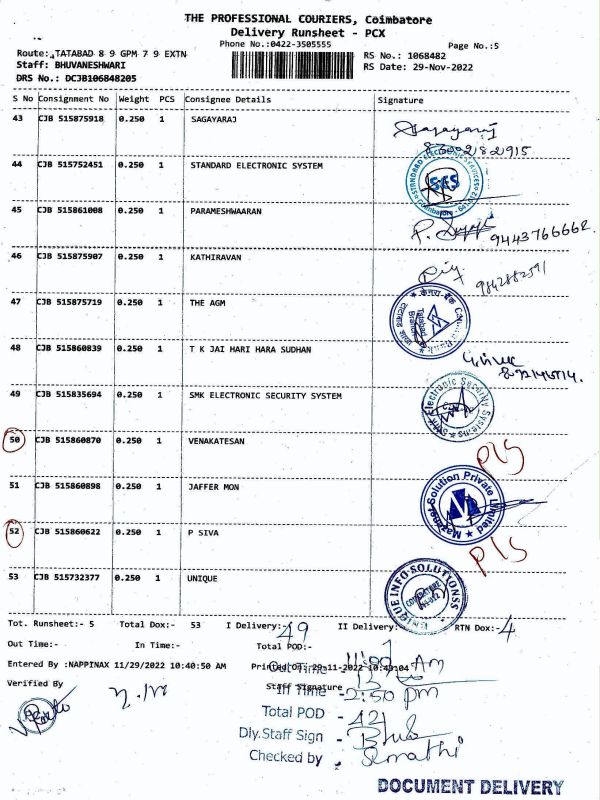 THE PROFESSIONAL COURIERS, Coimbatore
Delivery Runsheet - PCX
Phone No.:0422-3505555
Page No.:5
Route: TATABAD 8 9 GPM 7 9 EXTN
RS No.: 1068482
Staff: BHUVANESHWARI
RS Date: 29-Nov-2022
DRS No.: DCJB106848205
S No Consignment No Weight PCS Consignee Details Signature
43 CJB 515875918 0.250 1 SAGAYARAJ
Sagayaraj
44 CJB 515752451 0.250 1 STANDARD ELECTRONIC SYSTEM
SES
45 CJB 515861008 0.250 1 PARAMESHWAARAN
9443766662
46 CJB 515875907 0.250 1 KATHIRAVAN
9842882591
47 CJB 515875719 0.250 1 THE AGM
केनरा बैंक Canara Bank
Tatabad Branch
48 CJB 515860839 0.250 1 T K JAI HARI HARA SUDHAN
49 CJB 515835694 0.250 1 SMK ELECTRONIC SECURITY SYSTEM
SMK Electronic Security Systems
50 CJB 515860870 0.250 1 VENAKATESAN
P/S
51 CJB 515860898 0.250 1 JAFFER MON
Solution Private Limited
52 CJB 515860622 0.250 1 P SIVA
P/S
53 CJB 515732377 0.250 1 UNIQUE
UNIQUE INFO SOLUTIONSS
COIMBATORE
Tot. Runsheet:- 5 Total Dox:- 53 I Delivery:- 49 II Delivery: RTN Dox:- 4
Out Time:- In Time:- Total POD:-
Entered By :NAPPINAX 11/29/2022 10:40:50 AM Printed On :29-11-2022 10:43:04
Out Time - Am
Verified By Staff Signature
In Time - 2:50 pm
Total POD - 42
Dly.Staff Sign -
Checked by -
DOCUMENT DELIVERY